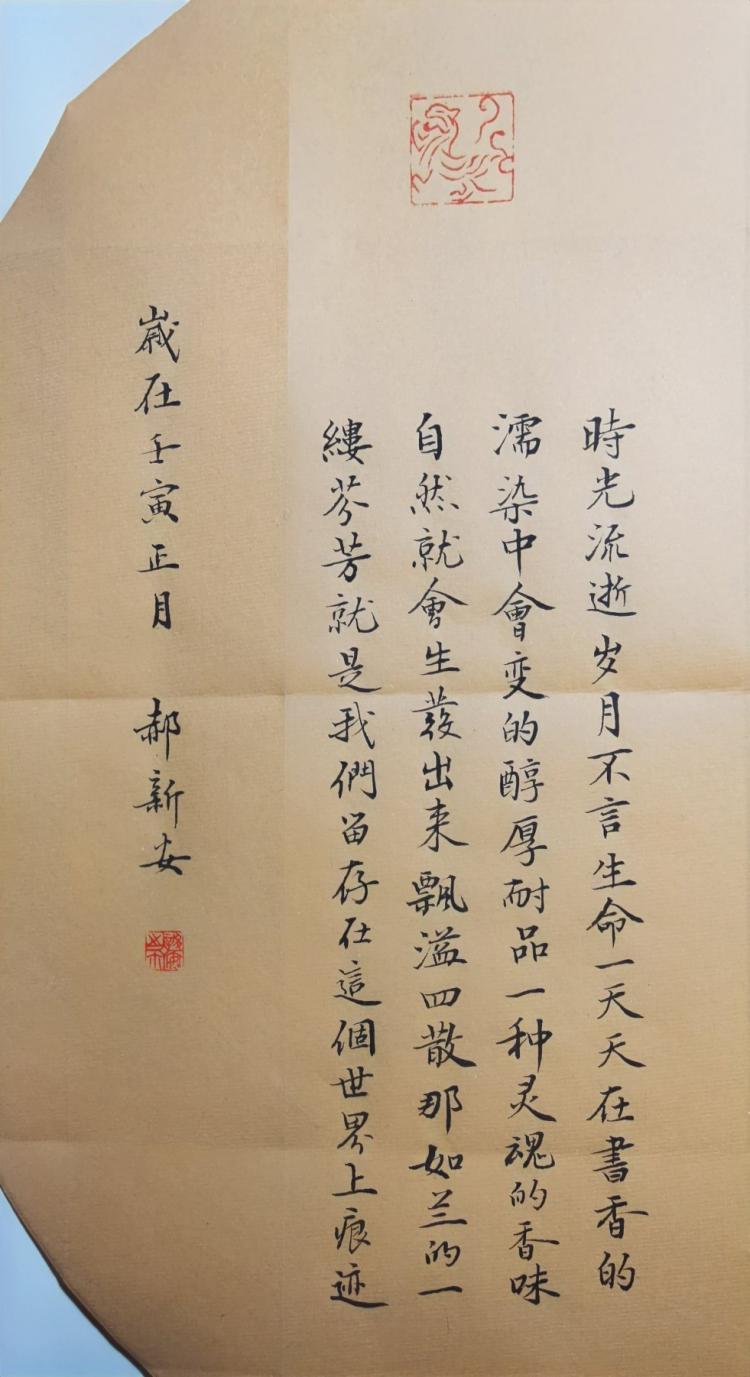 時光流逝岁月不言生命一天天在書香的
濡染中會变的醇厚耐品一种灵魂的香味
自然就會生發出来飄溢四散那如兰的一
縷芬芳就是我們留存在這個世界上痕迹
歲在壬寅正月 郝新安